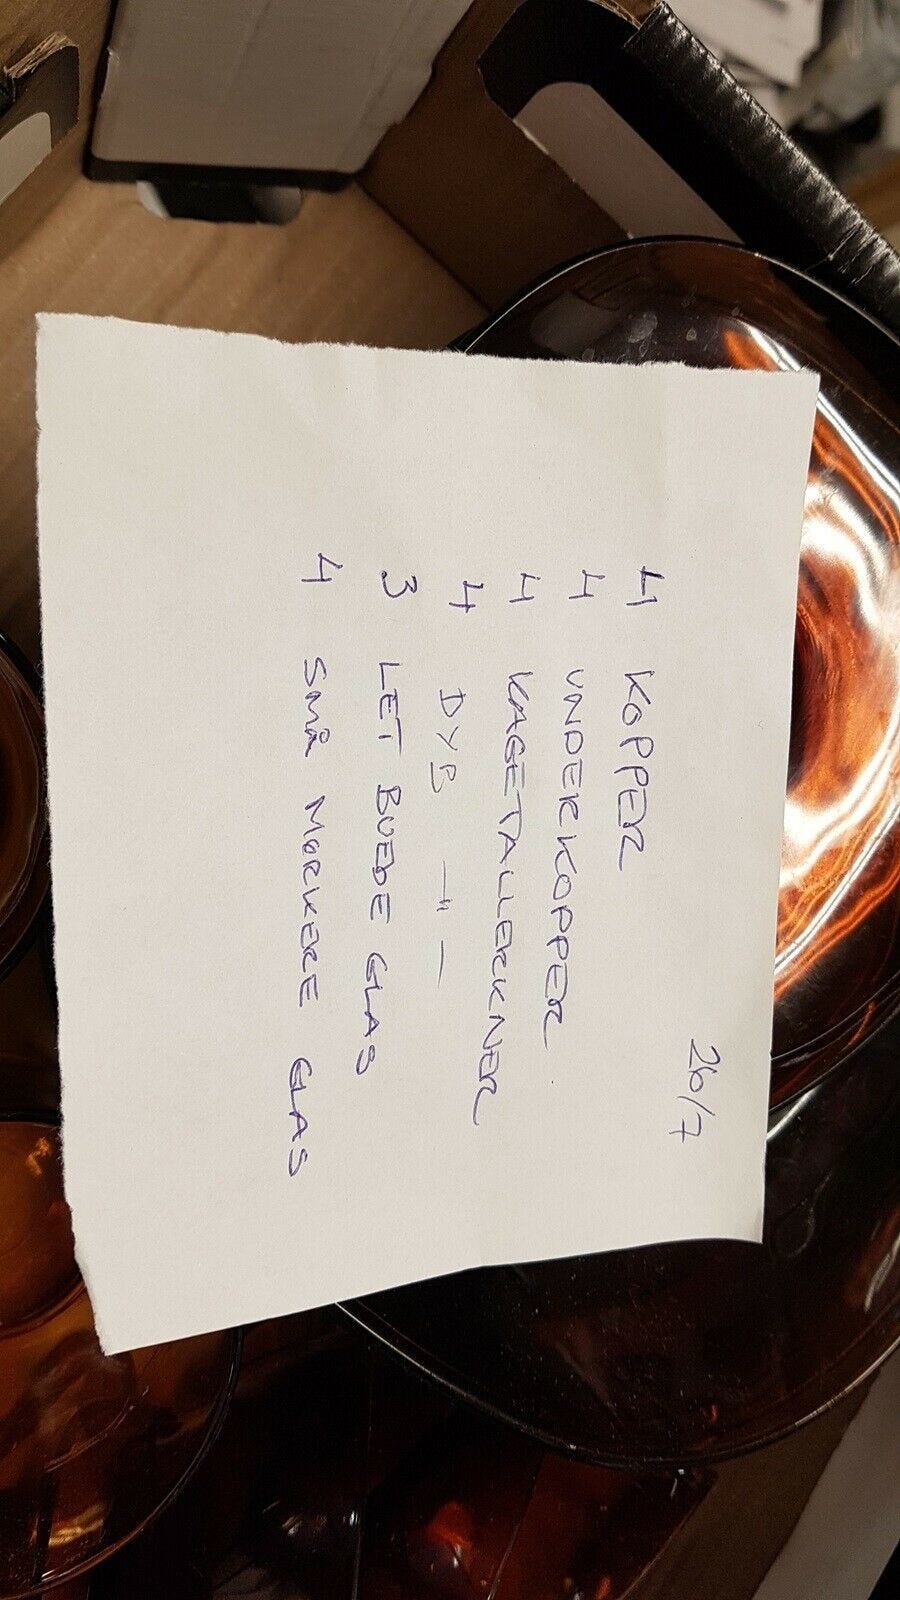 26/7
4 KOPPER
4 UNDERKOPPER
4 KAGETALLERKNER
4 DYB —"—
3 LET BUEDE GLAS
4 SMÅ MØRKERE GLAS